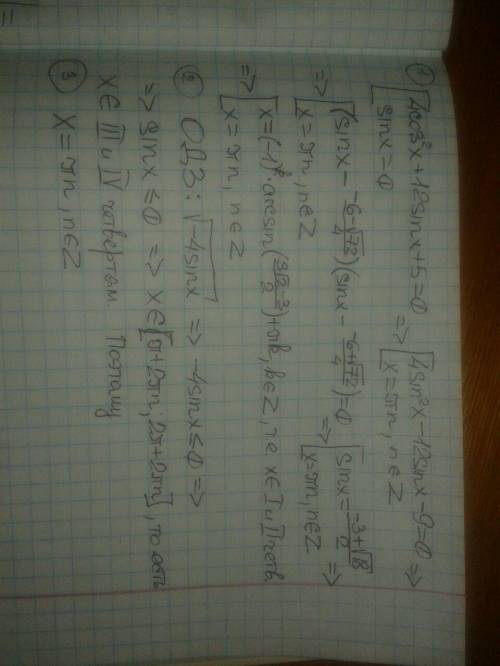 ① [4cos²x+12sinx+5=0 => [4sin²x-12sinx-9=0 =>
[sinx=0 [x=πn, n∈Z
=> [(sinx - (-6-√72)/4)(sinx - (-6+√72)/4)=0 => [sinx = (-3+√18)/2 =>
[x=πn, n∈Z [x=πn, n∈Z
=> [x=(-1)ᵏ·arcsin((3√2-3)/2)+πk, k∈Z, т.е x∈I и II четв
[x=πn, n∈Z
② ОДЗ: √-4sinx => -4sinx≤0 =>
=> sinx≤0 => x∈[π+2πn; 2π+2πn], то есть
x∈III и IV четвертям. Поэтому
③ X=πn, n∈Z